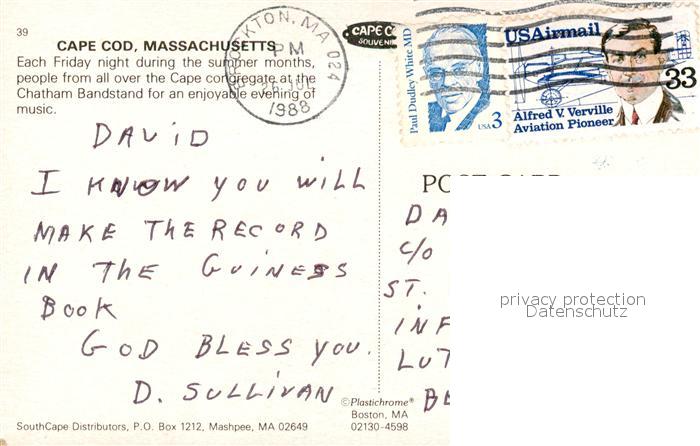 39
CAPE COD, MASSACHUSETTS
Each Friday night during the summer months,
people from all over the Cape congregate at the
Chatham Bandstand for an enjoyable evening of
music.
BROCKTON, MA 024
PM
JUL
1988
CAPE CO
SOUVENI
Paul Dudley White MD
USA 3
USAirmail
33
Alfred V. Verville
Aviation Pioneer
DAVID
I KNOW YOU WILL
MAKE THE RECORD
IN THE GUINESS
BOOK
GOD BLESS YOU.
D. SULLIVAN
DA
C/O
ST.
INF
LUT
BE
privacy protection
Datenschutz
©Plastichrome®
Boston, MA
02130-4598
SouthCape Distributors, P.O. Box 1212, Mashpee, MA 02649